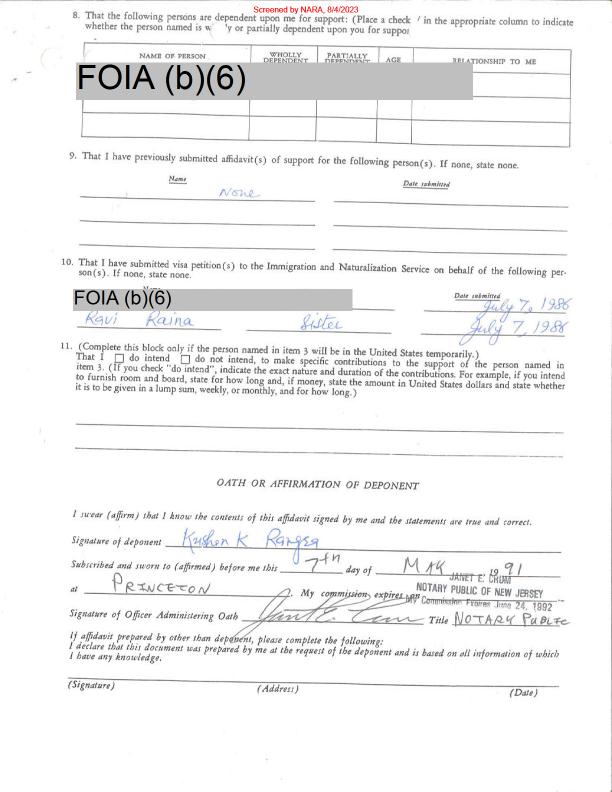 Screened by NARA, 8/4/2023
8. That the following persons are dependent upon me for support: (Place a check in the appropriate column to indicate
whether the person named is w 'y or partially dependent upon you for suppor
NAME OF PERSON WHOLLY DEPENDENT PARTIALLY DEPENDENT AGE RELATIONSHIP TO ME
FOIA (b)(6)
9. That I have previously submitted affidavit(s) of support for the following person(s). If none, state none.
Name Date submitted
None
10. That I have submitted visa petition(s) to the Immigration and Naturalization Service on behalf of the following per-
son(s). If none, state none.
Name Date submitted
FOIA (b)(6) July 7, 1986
Ravi Raina Sister July 7, 1986
11. (Complete this block only if the person named in item 3 will be in the United States temporarily.)
That I ☐ do intend ☐ do not intend, to make specific contributions to the support of the person named in
item 3. (If you check "do intend", indicate the exact nature and duration of the contributions. For example, if you intend
to furnish room and board, state for how long and, if money, state the amount in United States dollars and state whether
it is to be given in a lump sum, weekly, or monthly, and for how long.)
OATH OR AFFIRMATION OF DEPONENT
I swear (affirm) that I know the contents of this affidavit signed by me and the statements are true and correct.
Signature of deponent Kushen K
Subscribed and sworn to (affirmed) before me this 7th day of MAY 1991
JANET E. CRUM
at PRINCETON . My commission expires on NOTARY PUBLIC OF NEW JERSEY
My Commission Expires June 24, 1992
Signature of Officer Administering Oath Janet E. Crum Title NOTARY PUBLIC
If affidavit prepared by other than deponent, please complete the following:
I declare that this document was prepared by me at the request of the deponent and is based on all information of which
I have any knowledge.
(Signature) (Address) (Date)